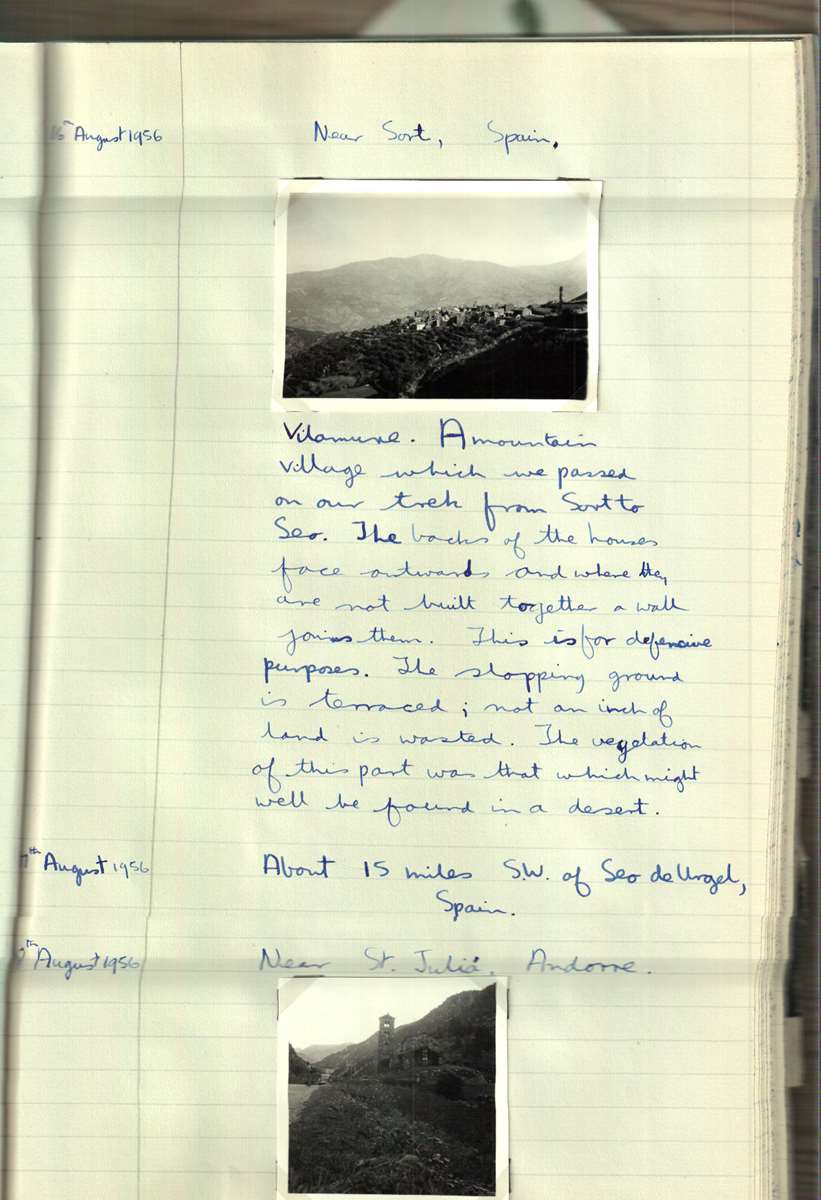 16th August 1956 Near Sort, Spain.
Vilamure. A mountain
village which we passed
on our trek from Sort to
Seo. The backs of the houses
face outwards and where they
are not built together a wall
joins them. This is for defensive
purposes. The slopping ground
is terraced; not an inch of
land is wasted. The vegetation
of this part was that which might
well be found in a desert.
7th August 1956 About 15 miles S.W. of Seo de Urgel,
Spain.
August 1956 Near St. Juliá, Andorre.